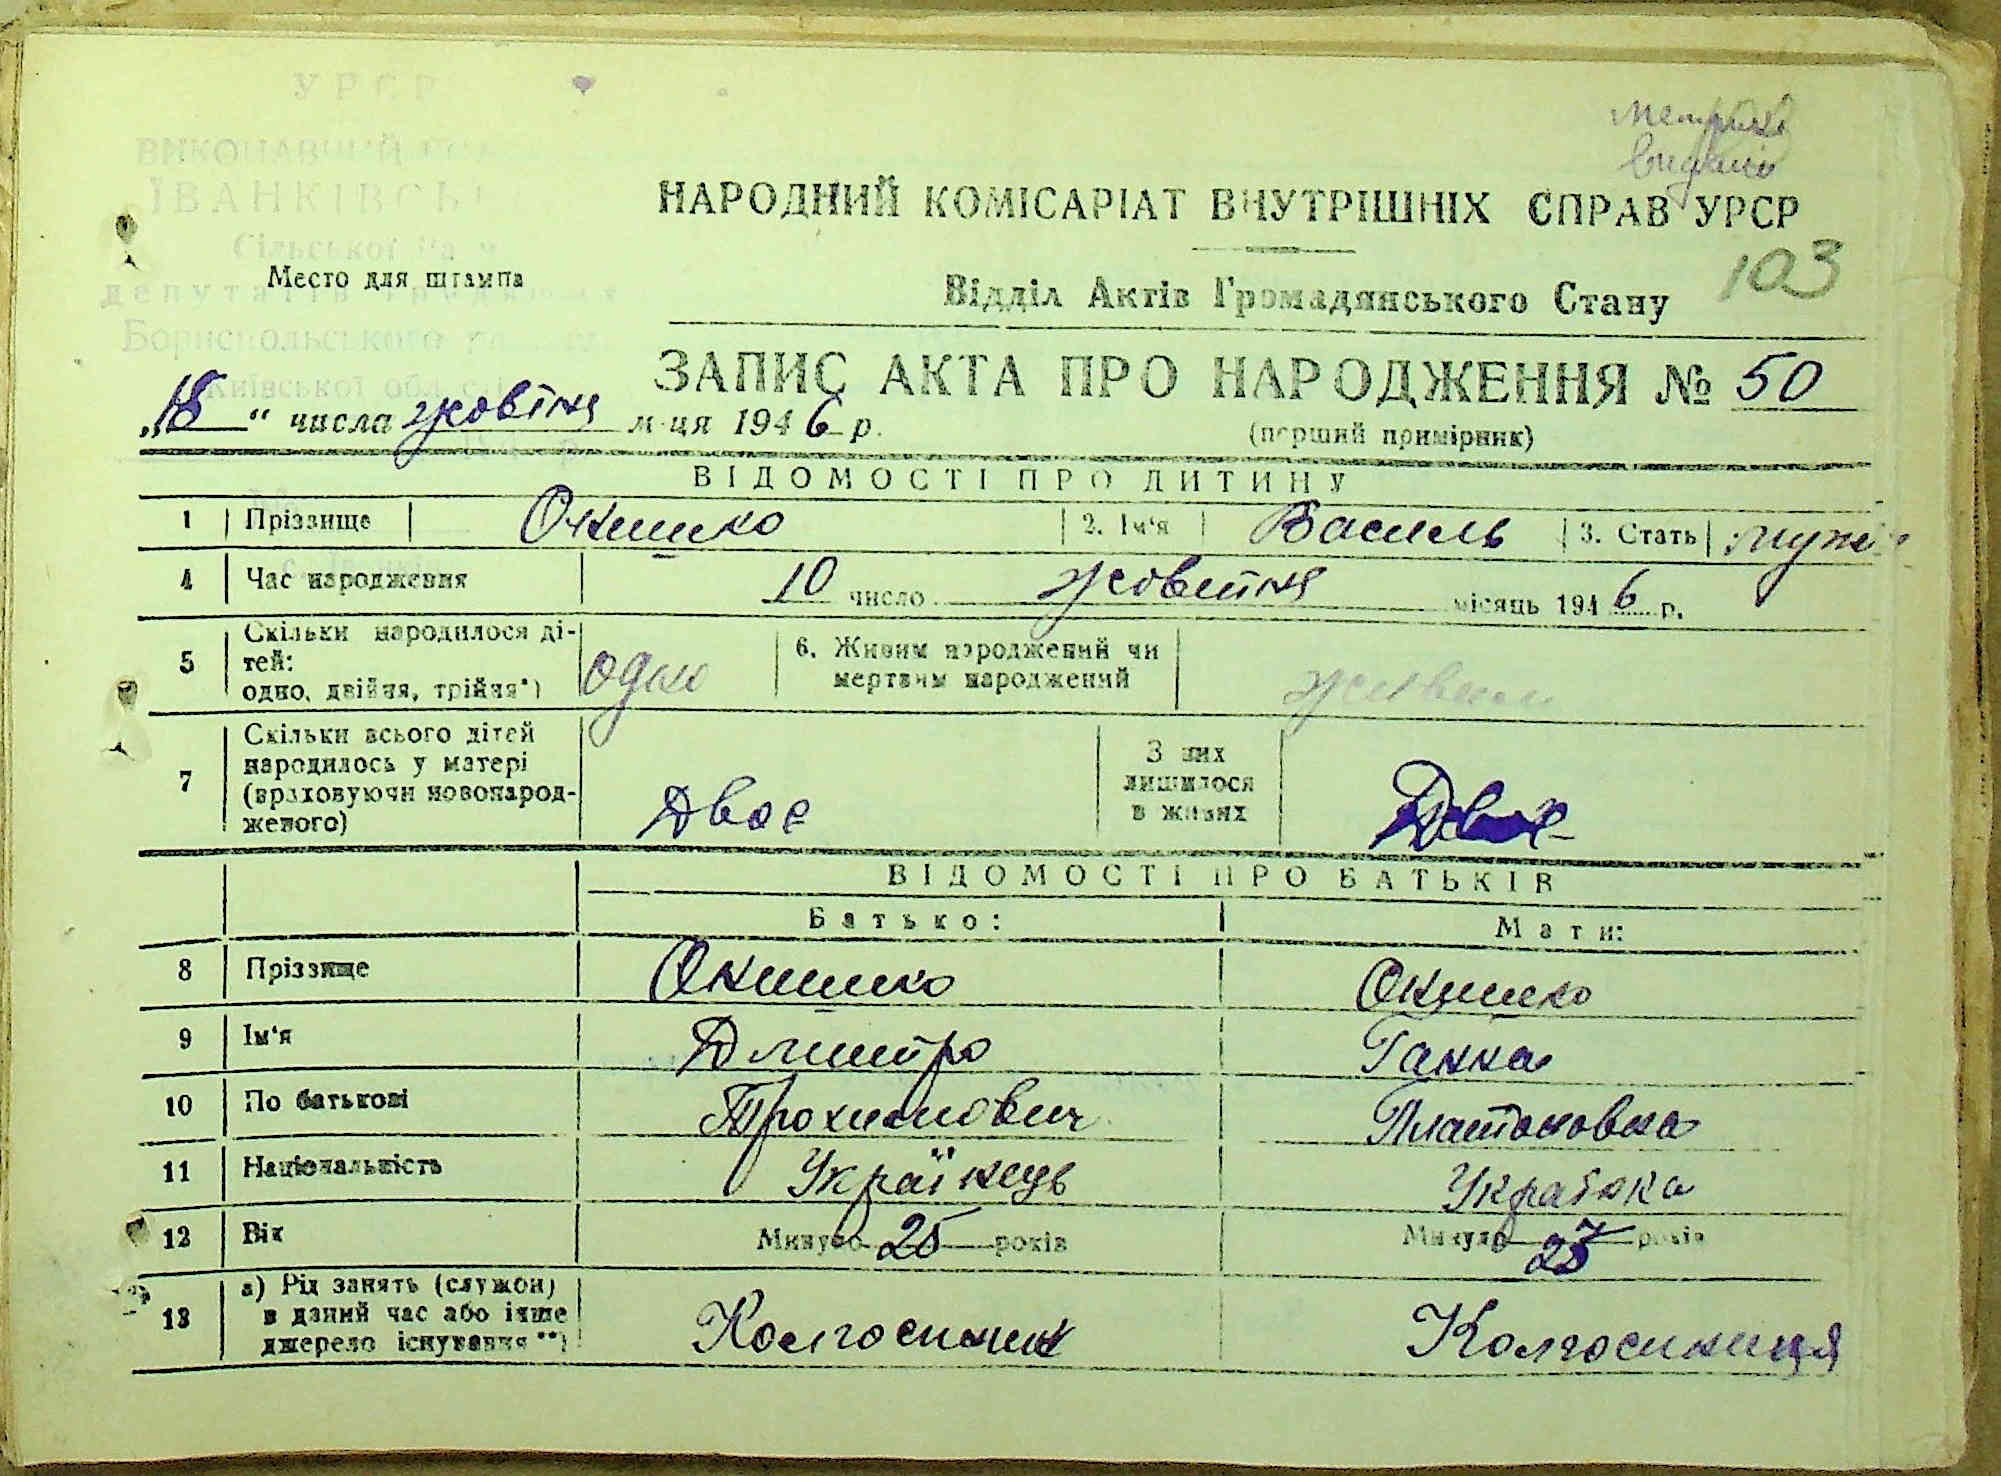 Метрика
видана
НАРОДНИЙ КОМІСАРІАТ ВНУТРІШНІХ СПРАВ УРСР
103
Место для штампа
Відділ Актів Громадянського Стану
ЗАПИС АКТА ПРО НАРОДЖЕННЯ № 50
„18“ числа жовтня м-ця 1946 р.
(перший примірник)
ВІДОМОСТІ ПРО ДИТИНУ
1 Прізвище Окишко 2. Ім'я Василь 3. Стать
4 Час народження 10 число жовтня місяць 1946 р.
5 Скільки народилося ді-
тей:
одно, двійня, трійня*) одно
6. Живим народжений чи
мертвим народжений живим
7 Скільки всього дітей
народилось у матері
(враховуючи новонарод-
женого) Двое
З них
лишилося
в живих Двое
ВІДОМОСТІ ПРО БАТЬКІВ
Батько: Мати:
8 Прізвище Окишко Окишко
9 Ім'я Дмитро Ганна
10 По батькові Трохимович Платоновна
11 Національність Українець Українка
12 Вік Минуло 25 років Минуло років
13 а) Рід занять (служби)
в даний час або інше
джерело існування**) Колгоспник Колгоспниця
УРСР
ІВАНКІВСЬ
Сільської Ра
депутатів трудящих
Бориспольського
Київської області